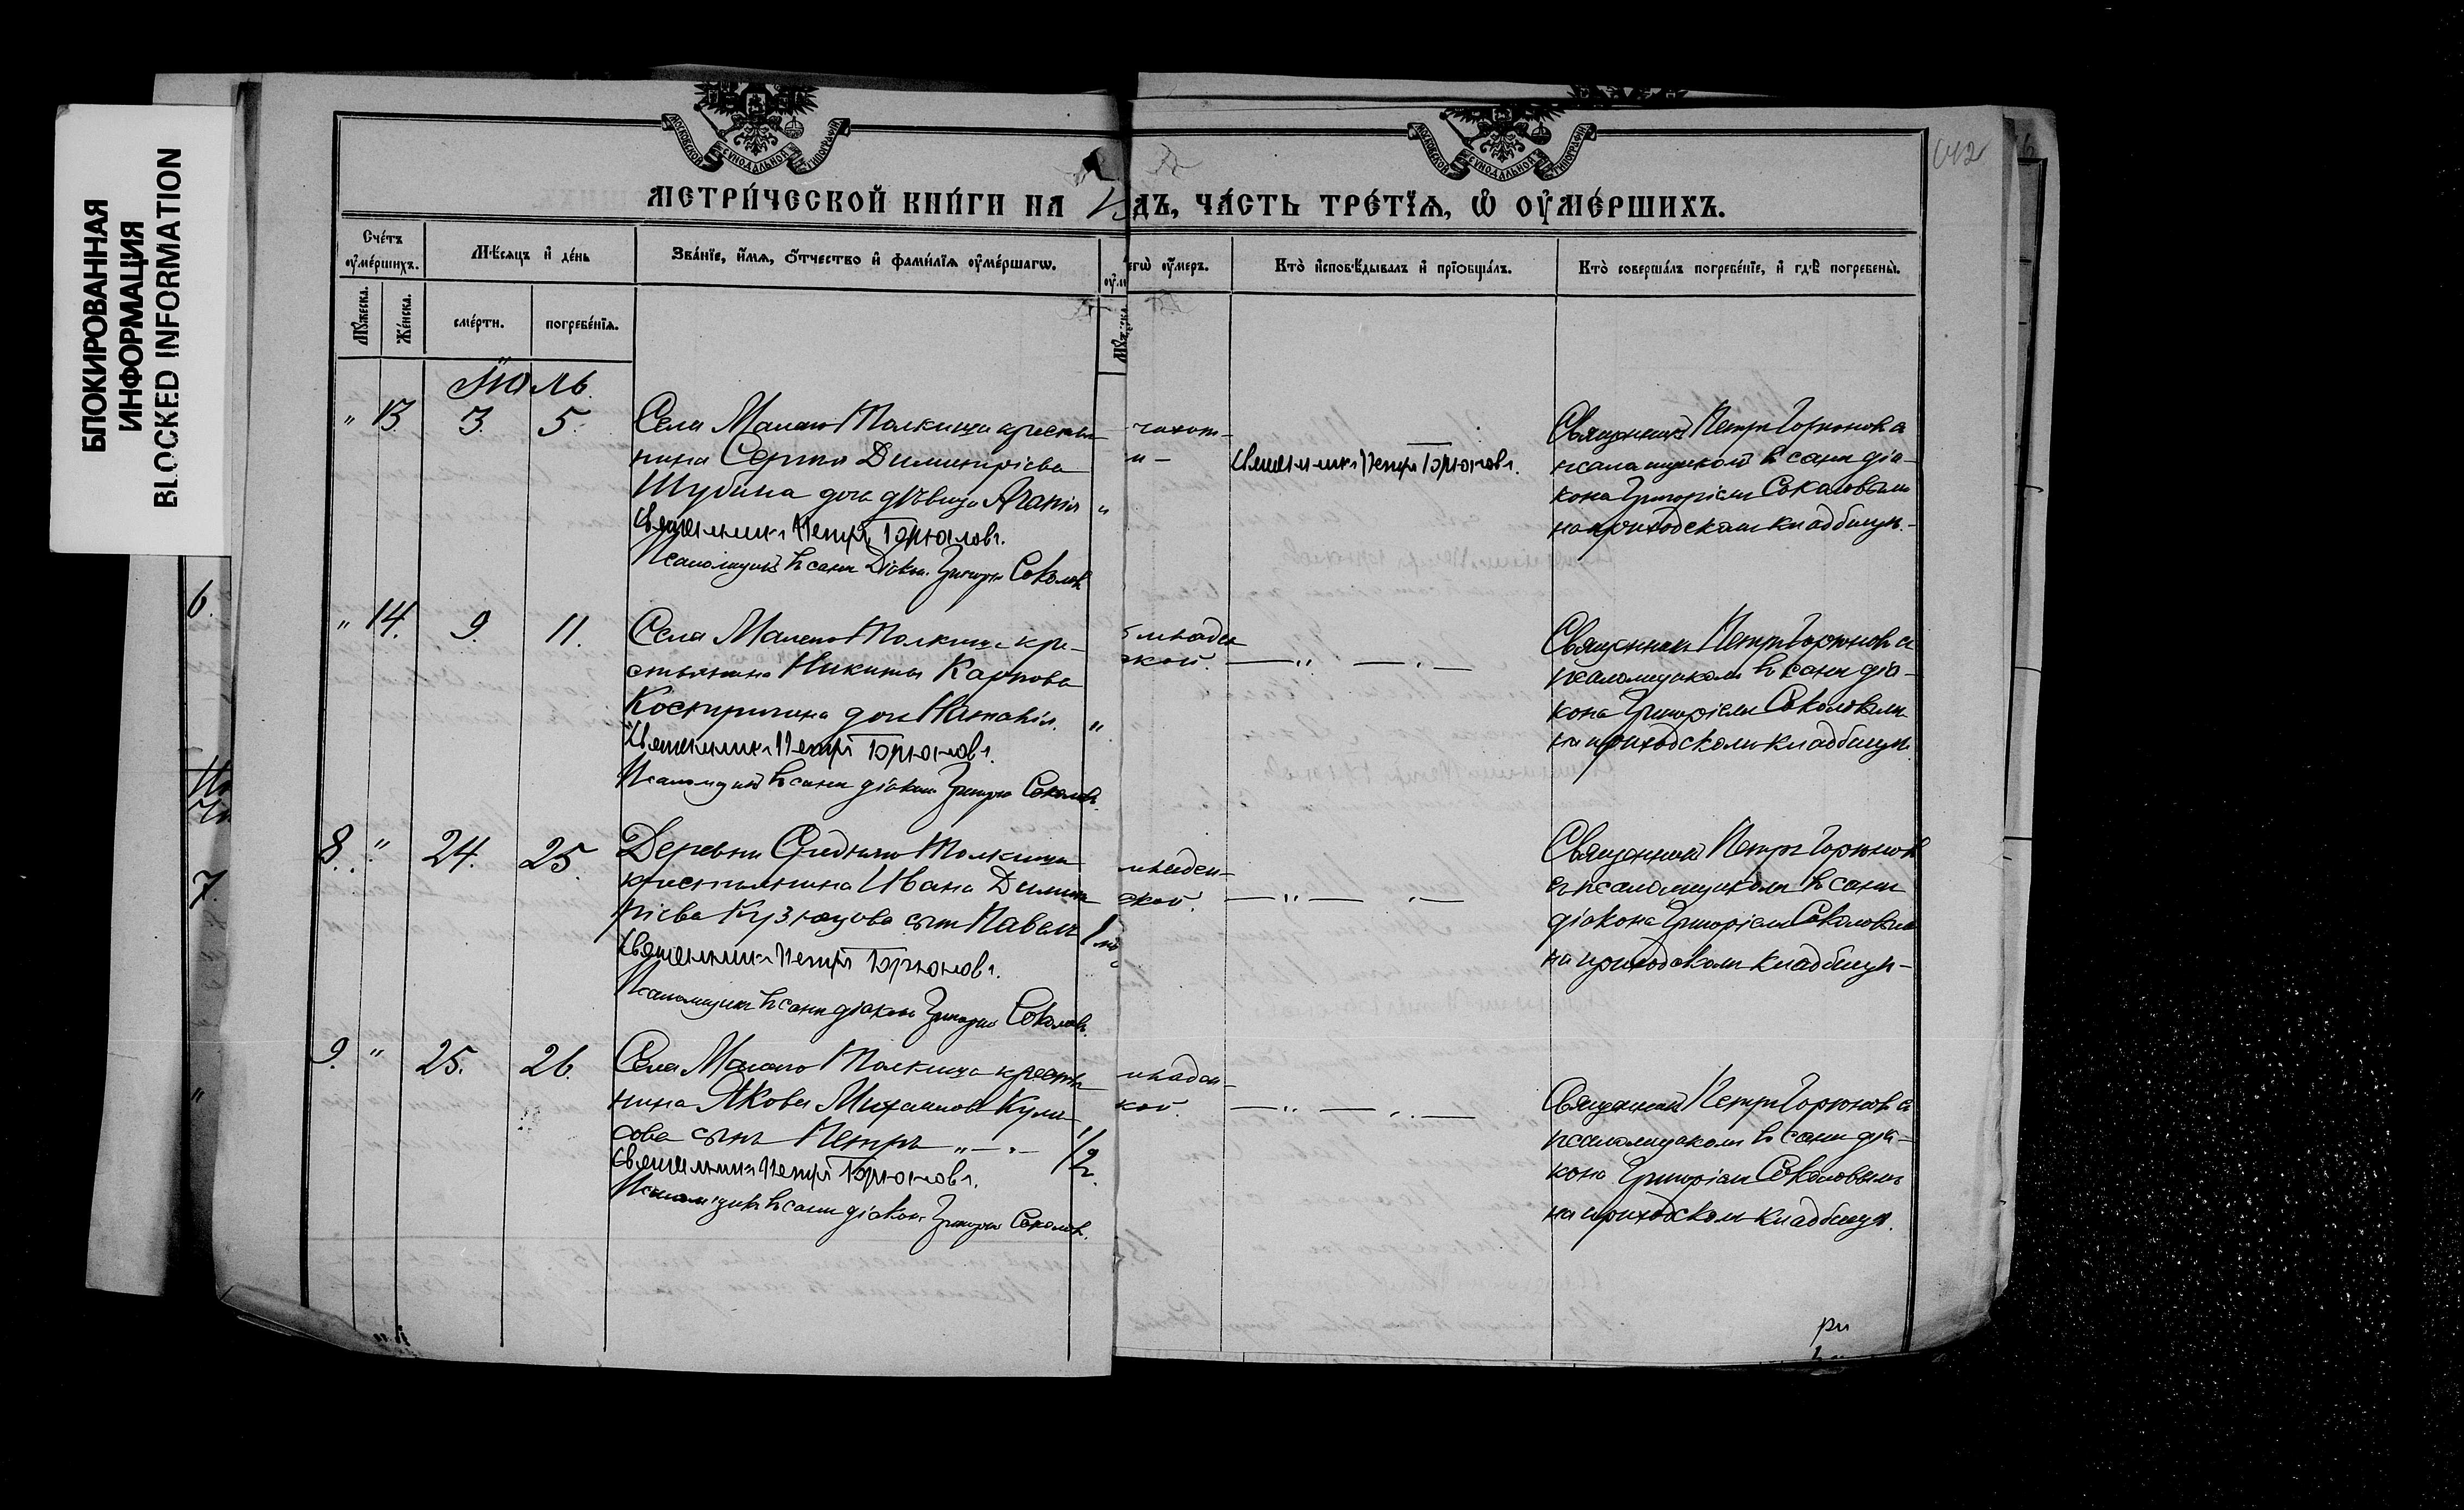 БЛОКИРОВАННАЯ
ИНФОРМАЦИЯ
BLOCKED INFORMATION
МОСКОВСКОЙ СѴНОДАЛЬНОЙ ТИПОГРАФІИ
МОСКОВСКОЙ СѴНОДАЛЬНОЙ ТИПОГРАФІИ
642
МЕТРИ́ЧЕСКОЙ КНИ́ГИ НА
ДЪ, ЧА́СТЬ ТРЕ́ТЇѦ, Ѡ ОУМЕ́РШИХЪ.
Сче́тъ оуме́ршихъ.
Мѣ́сяцъ и де́нь
Зва́нїе, и́мя, о́тчество и фами́лїя оуме́ршагѡ.
егѡ̀ оу́меръ.
Кто̀ исповѣ́дывалъ и прїобща́лъ.
Кто̀ соверша́лъ погребе́нїе, и гдѣ̀ погребены̀.
Му́жеска.
Же́нска.
сме́рти.
погребе́нїя.
Іюль.
" 13. 3. 5.
Села Малаго Толкиша крестья-
нина Сергія Димитріева
Шубина дочь дѣвица Агапія "
Священникъ Петръ Горюновъ.
Псаломщикъ в санѣ Діакон Григорій Соколовъ
чахот-
и-
Священникъ Петръ Горюновъ.
Священникъ Петръ Горюновъ с
псаломщикомъ в санѣ діа-
кона Григоріемъ Соколовымъ
на приходскомъ кладбищѣ.-
" 14. 9. 11.
Села Малаго Толкиша кре-
стьянина Никиты Карпова
дочь "
Священникъ Петръ Горюновъ.
Псаломщикъ в санѣ діакон Григорій Соколовъ.
младен
ской. —"— —"—
Священникъ Петръ Горюновъ съ
псаломщикомъ в санѣ діа-
кона Григоріемъ Соколовымъ
на приходскомъ кладбищѣ.
8. " 24. 25.
Деревни Средняго Толкиша
крестьянина Ивана Димит
ріева Кузнецова сынъ Павелъ 1
Священникъ Петръ Горюновъ.
Псаломщикъ в санѣ діакон Григорій Соколовъ.
младен-
ской. —"— —"—
Священникъ Петръ Горюновъ
съ псаломщикомъ в санѣ
діакона Григоріемъ Соколовымъ
на приходскомъ кладбищѣ-
9. " 25. 26.
Села Малаго Толкиша крестья
нина Якова Михаилова Кули-
сова сынъ Петръ "—"— 1/2
Священникъ Петръ Горюновъ.
Псаломщикъ в санѣ діакон Григорій Соколовъ.
младен-
кой. —"— —"—
Священникъ Петръ Горюновъ съ
псаломщикомъ в санѣ діа-
кона Григоріемъ Соколовымъ
на приходскомъ кладбищѣ.
6.
7.